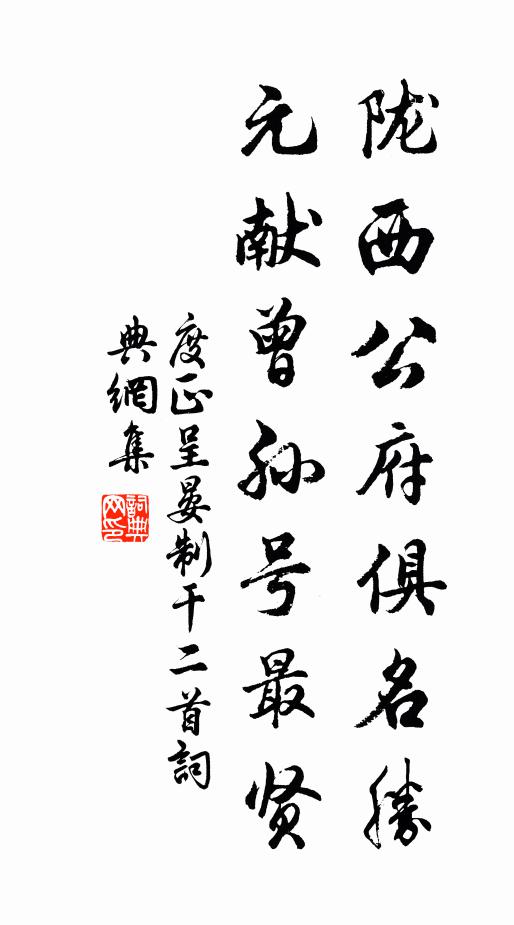 陇西公府俱名勝
元献曾孙号最贤
度正呈晏制干二首詞
典網集
詞典网印